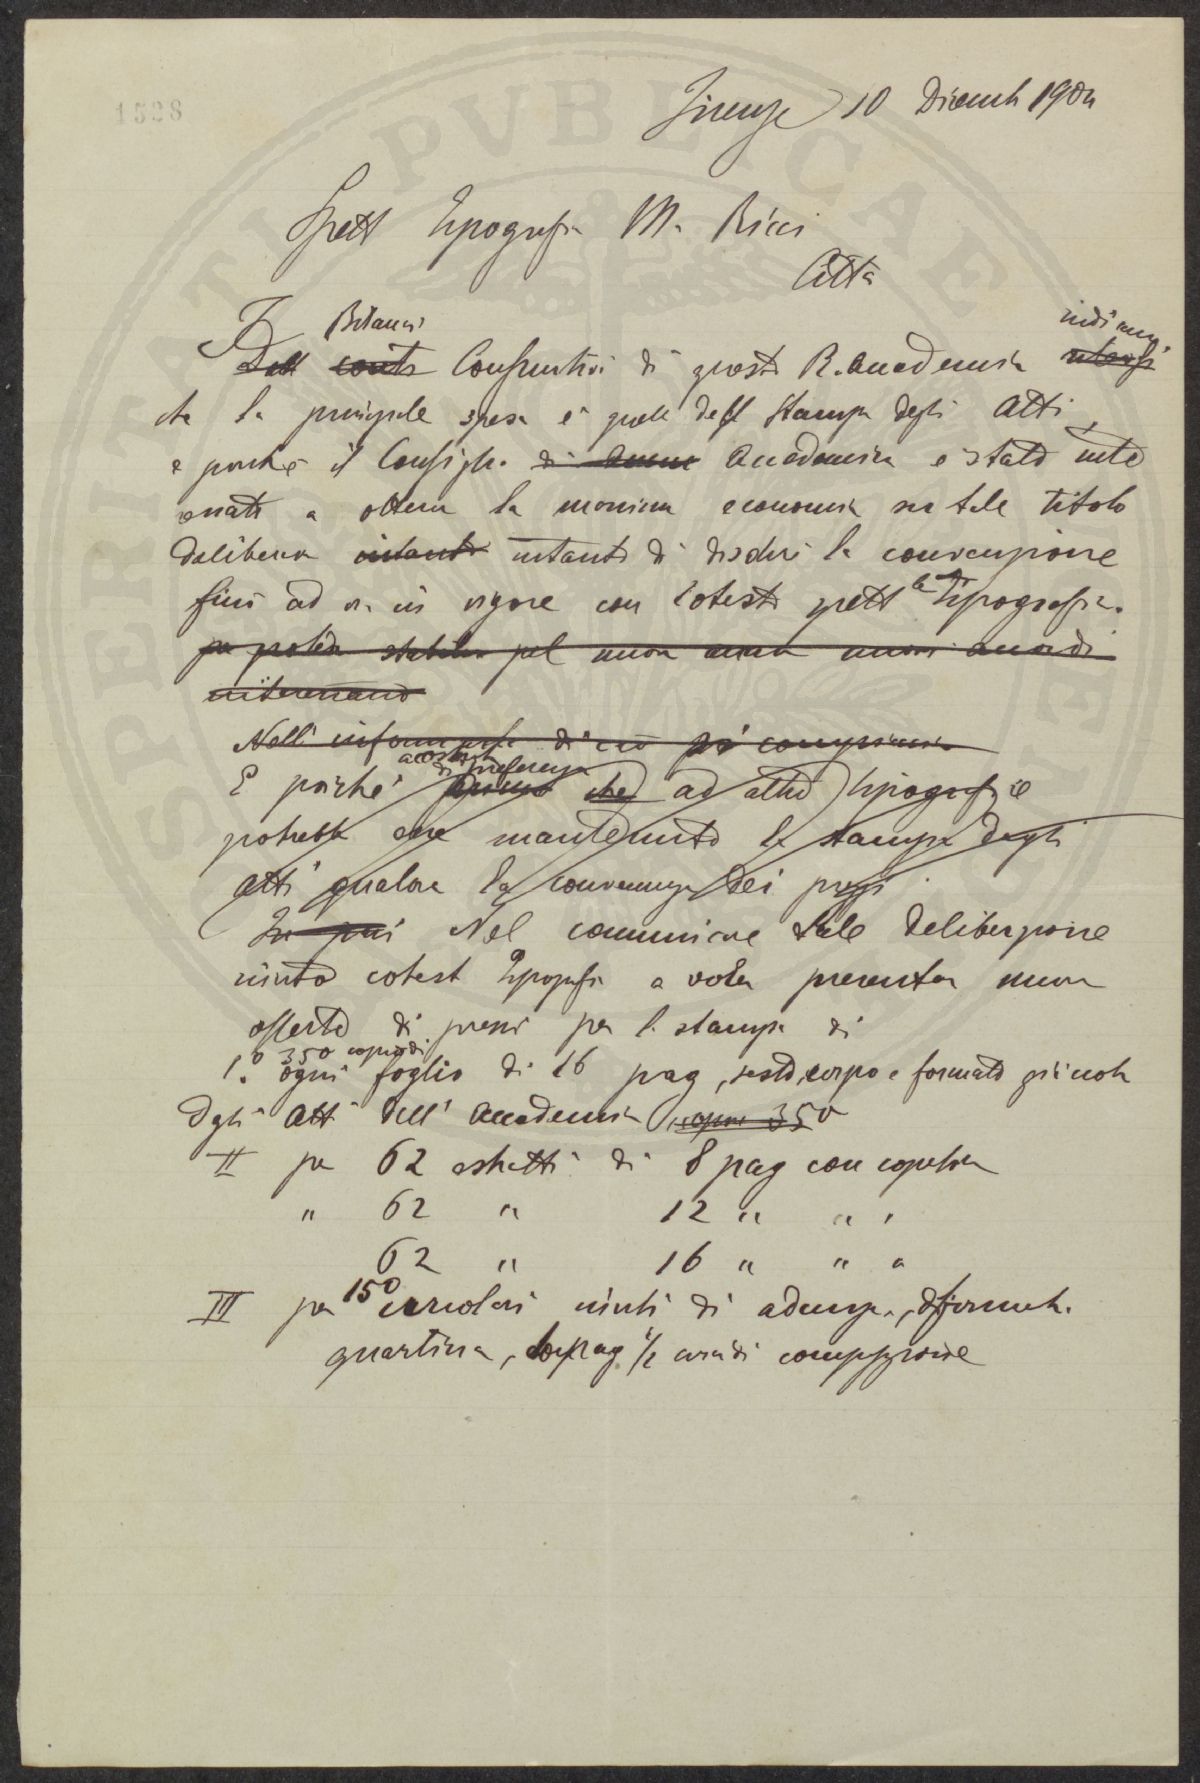 1528
Firenze 10 Dicemb 1904
Spett Tipografia M. Ricci
Città
I Bilanci indicano
Dall conti Consuntivi di questa R. Accademia
che la principale spesa è quella dell Stampa degli Atti,
e poiché il Consiglio di Accademia è stato inte
onato a ottenere la massima economia su tale titolo
delibera intanto intanto di disdire la convenzione
fino ad ora in vigore con cotesta spett le Tipografia.
per poter stabilire pel nuovo anno nuovi accordi
Nell' informarla di ciò
di preferenza
E poiché che ad altre tipografie
potrebbe essere mantenuto la stampa degli
atti qualora la convenienza dei prezzi
In pari Nel comunicare tale deliberazione
invito cotest Tipografia a voler presentar nuova
offerta di prezzi per la stampa di
350 copie di
1.º ogni foglio di 16 pag, testo, corpo e formato
Degli Atti dell' Accademia copie 350
II per 62 estratti di 8 pag con copertina
" 62 " 12 " " "
62 " 16 " " "
III per 150 circolari inviti di adunza,
quartina, pag ½ composizione